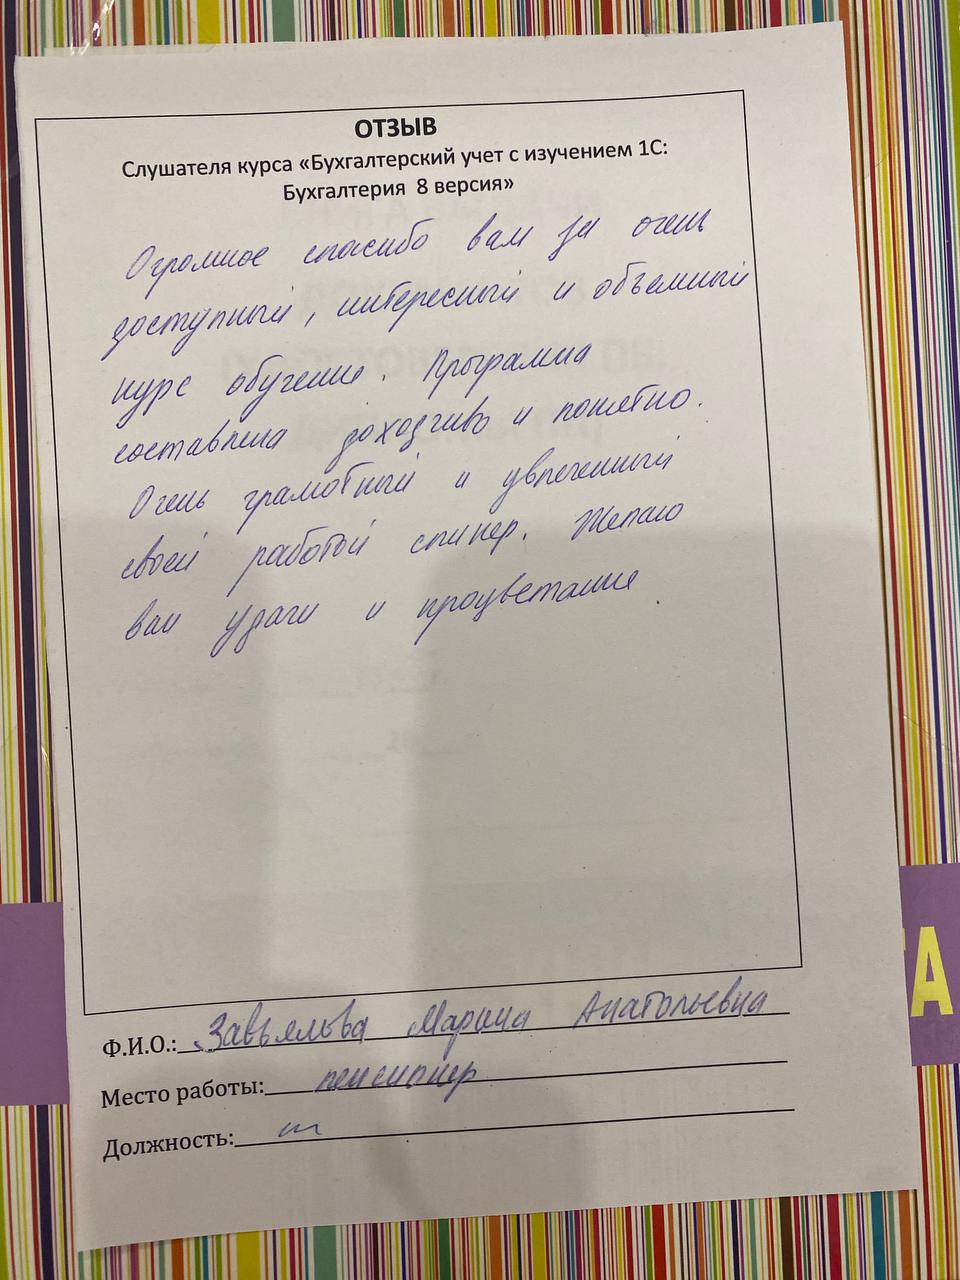 ОТЗЫВ
Слушателя курса «Бухгалтерский учет с изучением 1С:
Бухгалтерия 8 версия»
Огромное спасибо вам за очень
доступный, интересный и объемный
курс обучение. Программа
составлена доходчиво и понятно.
Очень грамотный и увлеченный
своей работой спикер. Желаю
вам удачи и процветание.
Ф.И.О.: Завьялова Марина Анатольевна
Место работы: пенсионер
Должность:
ТА